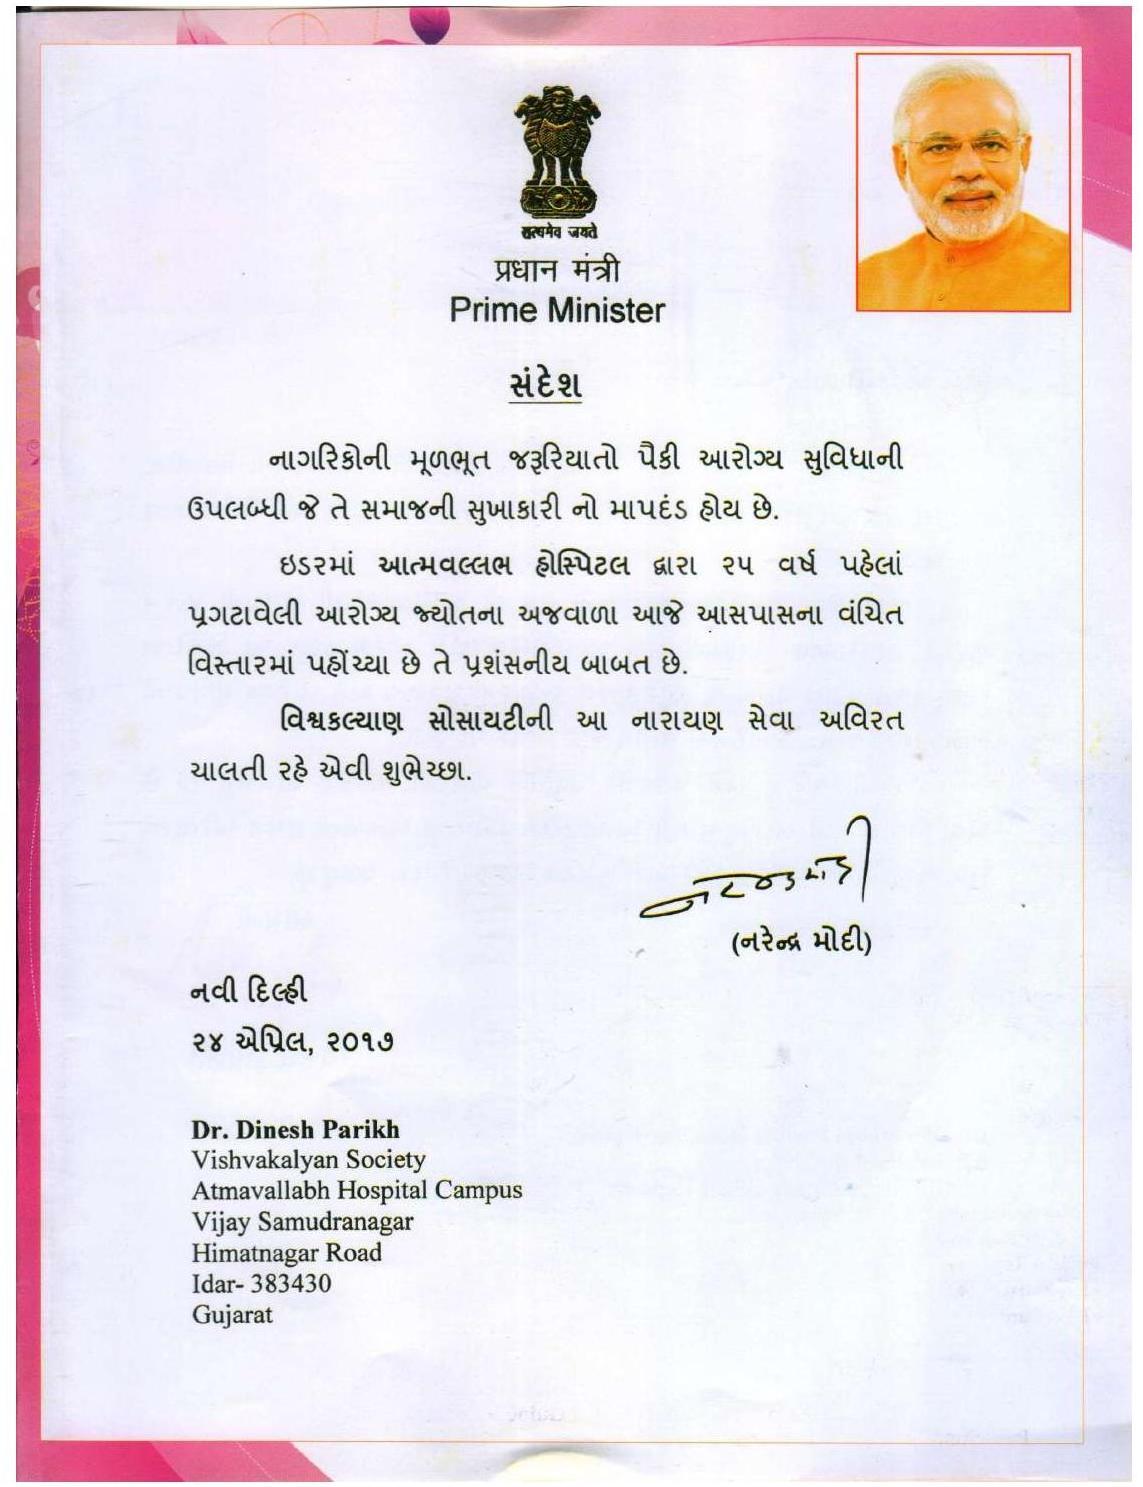 सत्यमेव जयते
प्रधान मंत्री
Prime Minister
સંદેશ
નાગરિકોની મૂળભૂત જરૂરિયાતો પૈકી આરોગ્ય સુવિધાની
ઉપલબ્ધી જે તે સમાજની સુખાકારી નો માપદંડ હોય છે.
ઇડરમાં આત્મવલ્લભ હોસ્પિટલ દ્વારા ૨૫ વર્ષ પહેલાં
પ્રગટાવેલી આરોગ્ય જ્યોતના અજવાળા આજે આસપાસના વંચિત
વિસ્તારમાં પહોંચ્યા છે તે પ્રશંસનીય બાબત છે.
વિશ્વકલ્યાણ સોસાયટીની આ નારાયણ સેવા અવિરત
ચાલતી રહે એવી શુભેચ્છા.
નરેન્દ્ર મોદી
(નરેન્દ્ર મોદી)
નવી દિલ્હી
૨૪ એપ્રિલ, ૨૦૧૭
Dr. Dinesh Parikh
Vishvakalyan Society
Atmavallabh Hospital Campus
Vijay Samudranagar
Himatnagar Road
Idar- 383430
Gujarat